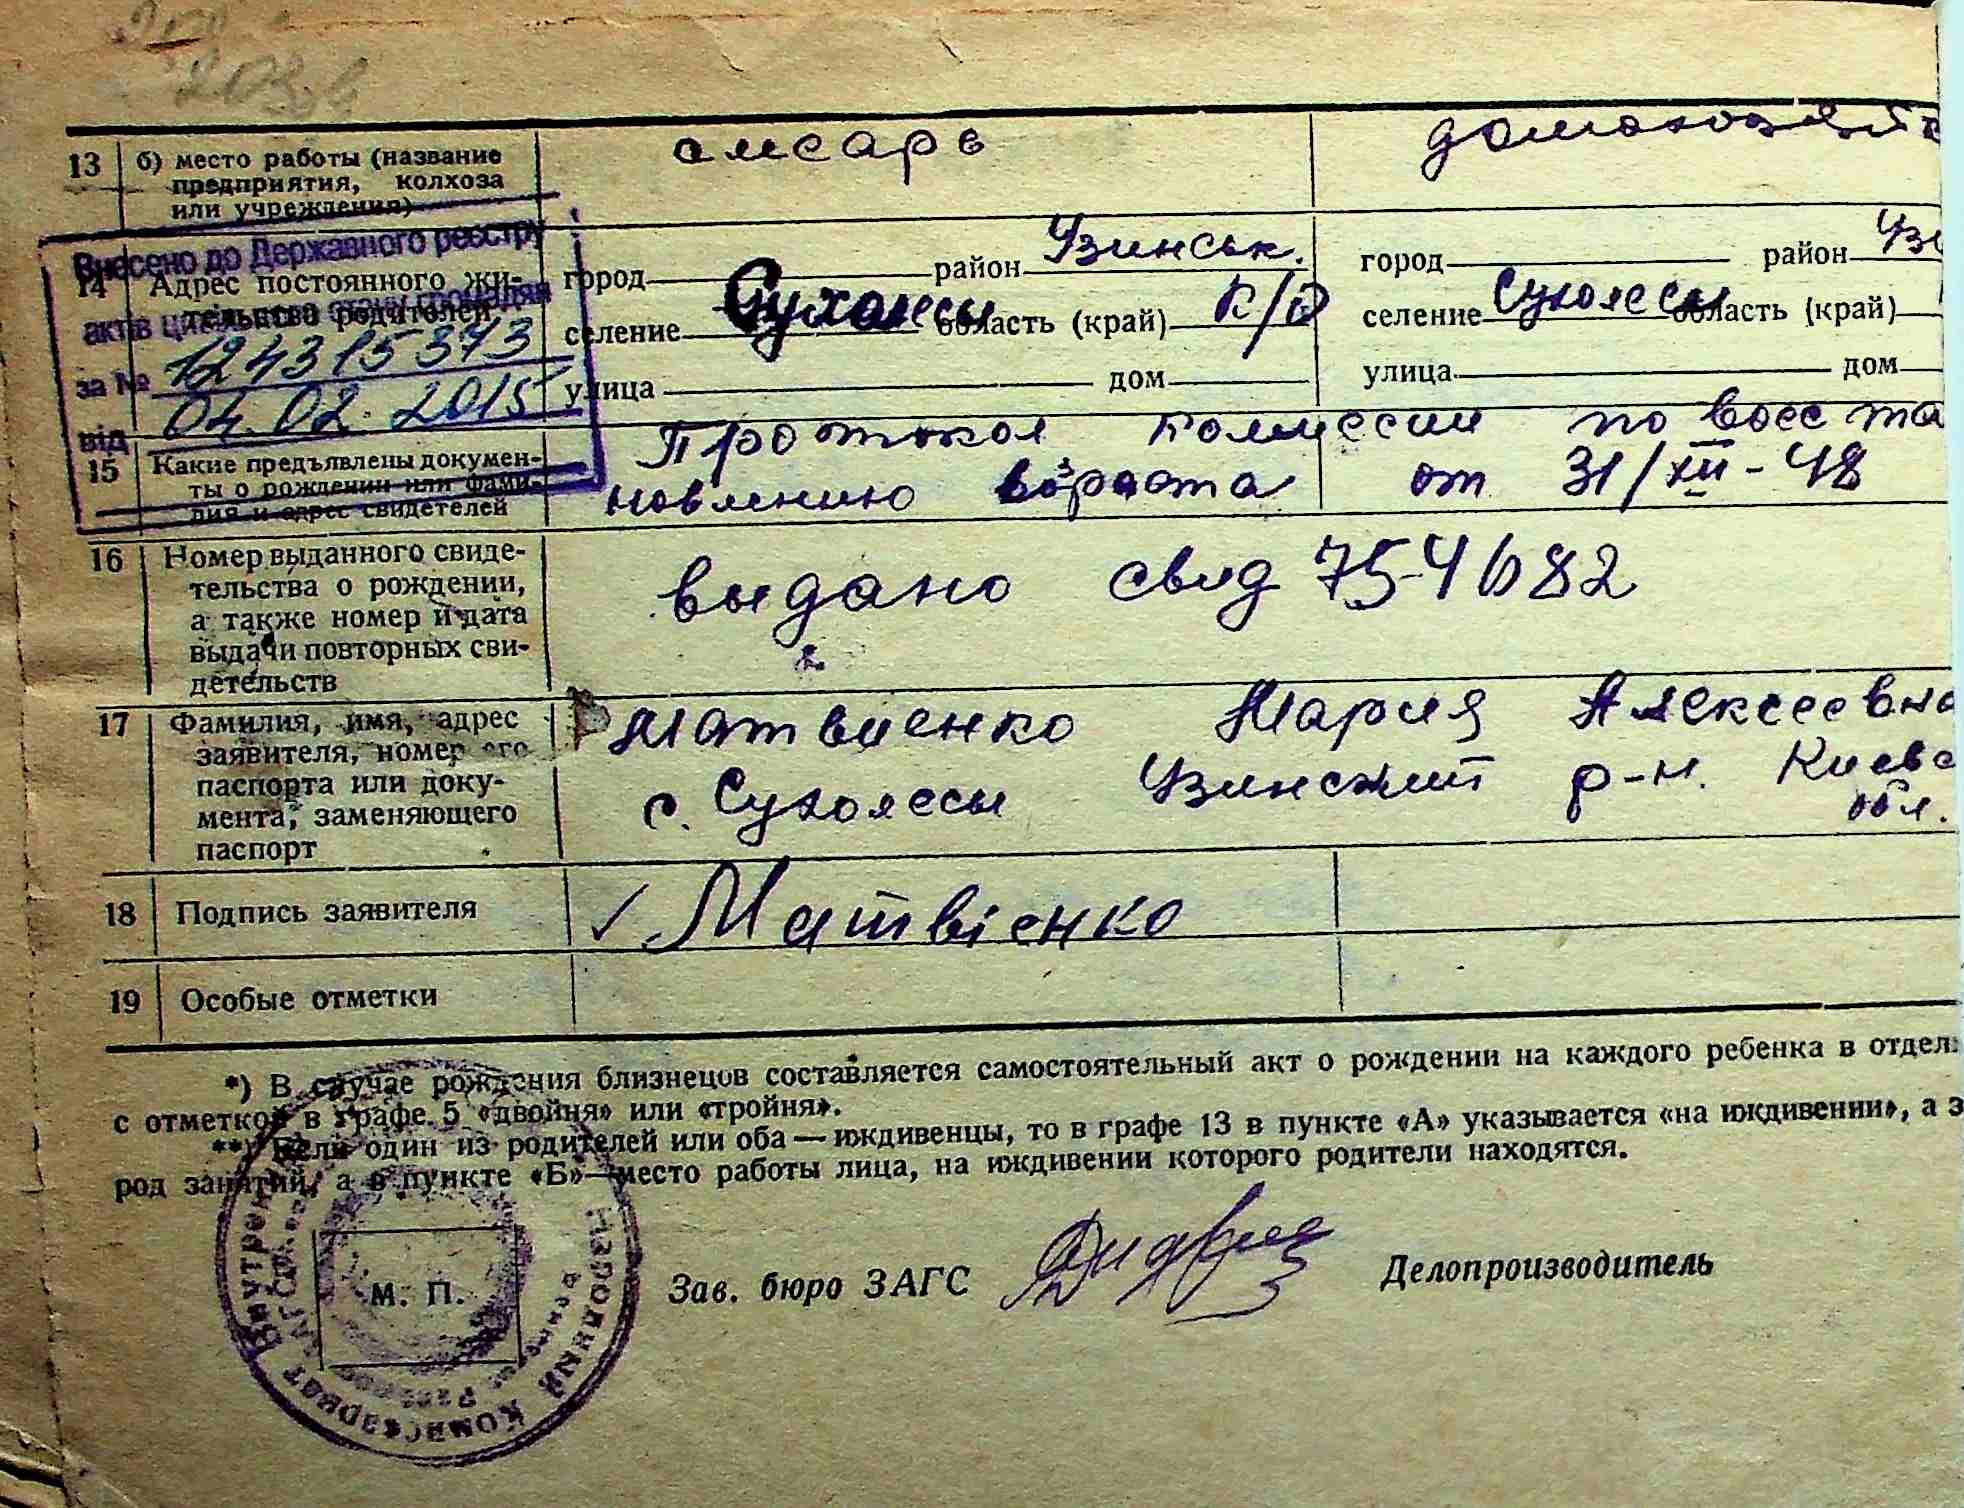 13 б) место работы (название
предприятия, колхоза
или учреждения)
слесарь домохозяйк
Внесено до Державного реєстру
актів цивільного стану громадян
за № 124315373
від 04.02.2015
14 Адрес постоянного жи-
тельства родителей
город район Узинськ.
селение Сухолесы область (край) К/О
улица дом
город район Узи
селение Сухолесы область (край)
улица дом
15 Какие предъявлены докумен-
ты о рождении или фами-
лия и адрес свидетелей
Протокол комиссии по восста
новлению возраста от 31/XII-48
16 Номер выданного свиде-
тельства о рождении,
а также номер и дата
выдачи повторных сви-
детельств
выдано свид 754682
17 Фамилия, имя, адрес
заявителя, номер его
паспорта или доку-
мента, заменяющего
паспорт
Матвиенко Мария Алексеевна
с. Сухолесы Узинский р-н. Киевс
обл.
18 Подпись заявителя
✓ Матвієнко
19 Особые отметки
*) В случае рождения близнецов составляется самостоятельный акт о рождении на каждого ребенка в отдел
с отметкой в графе 5 «двойня» или «тройня».
**) Если один из родителей или оба — иждивенцы, то в графе 13 в пункте «А» указывается «на иждивении», а з
род занятий, а в пункте «Б» — место работы лица, на иждивении которого родители находятся.
М. П.
Народный Комиссариат Внутрен
Зав. бюро ЗАГС
Делопроизводитель